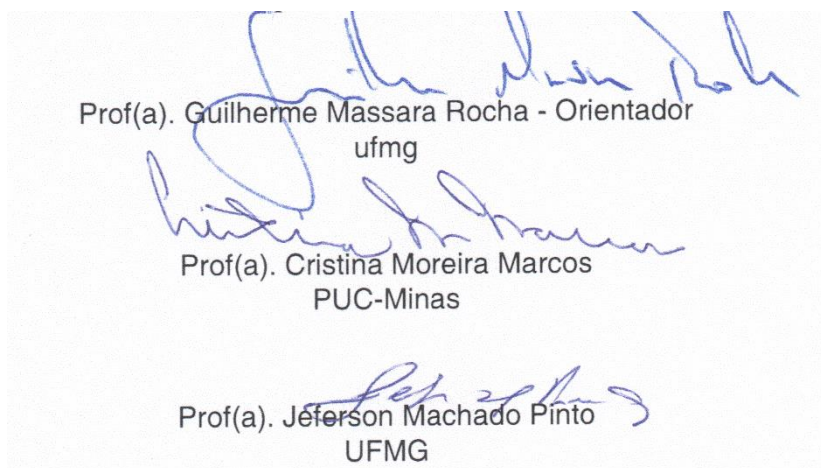 Prof(a). Guilherme Massara Rocha - Orientador
ufmg
Prof(a). Cristina Moreira Marcos
PUC-Minas
Prof(a). Jeferson Machado Pinto
UFMG